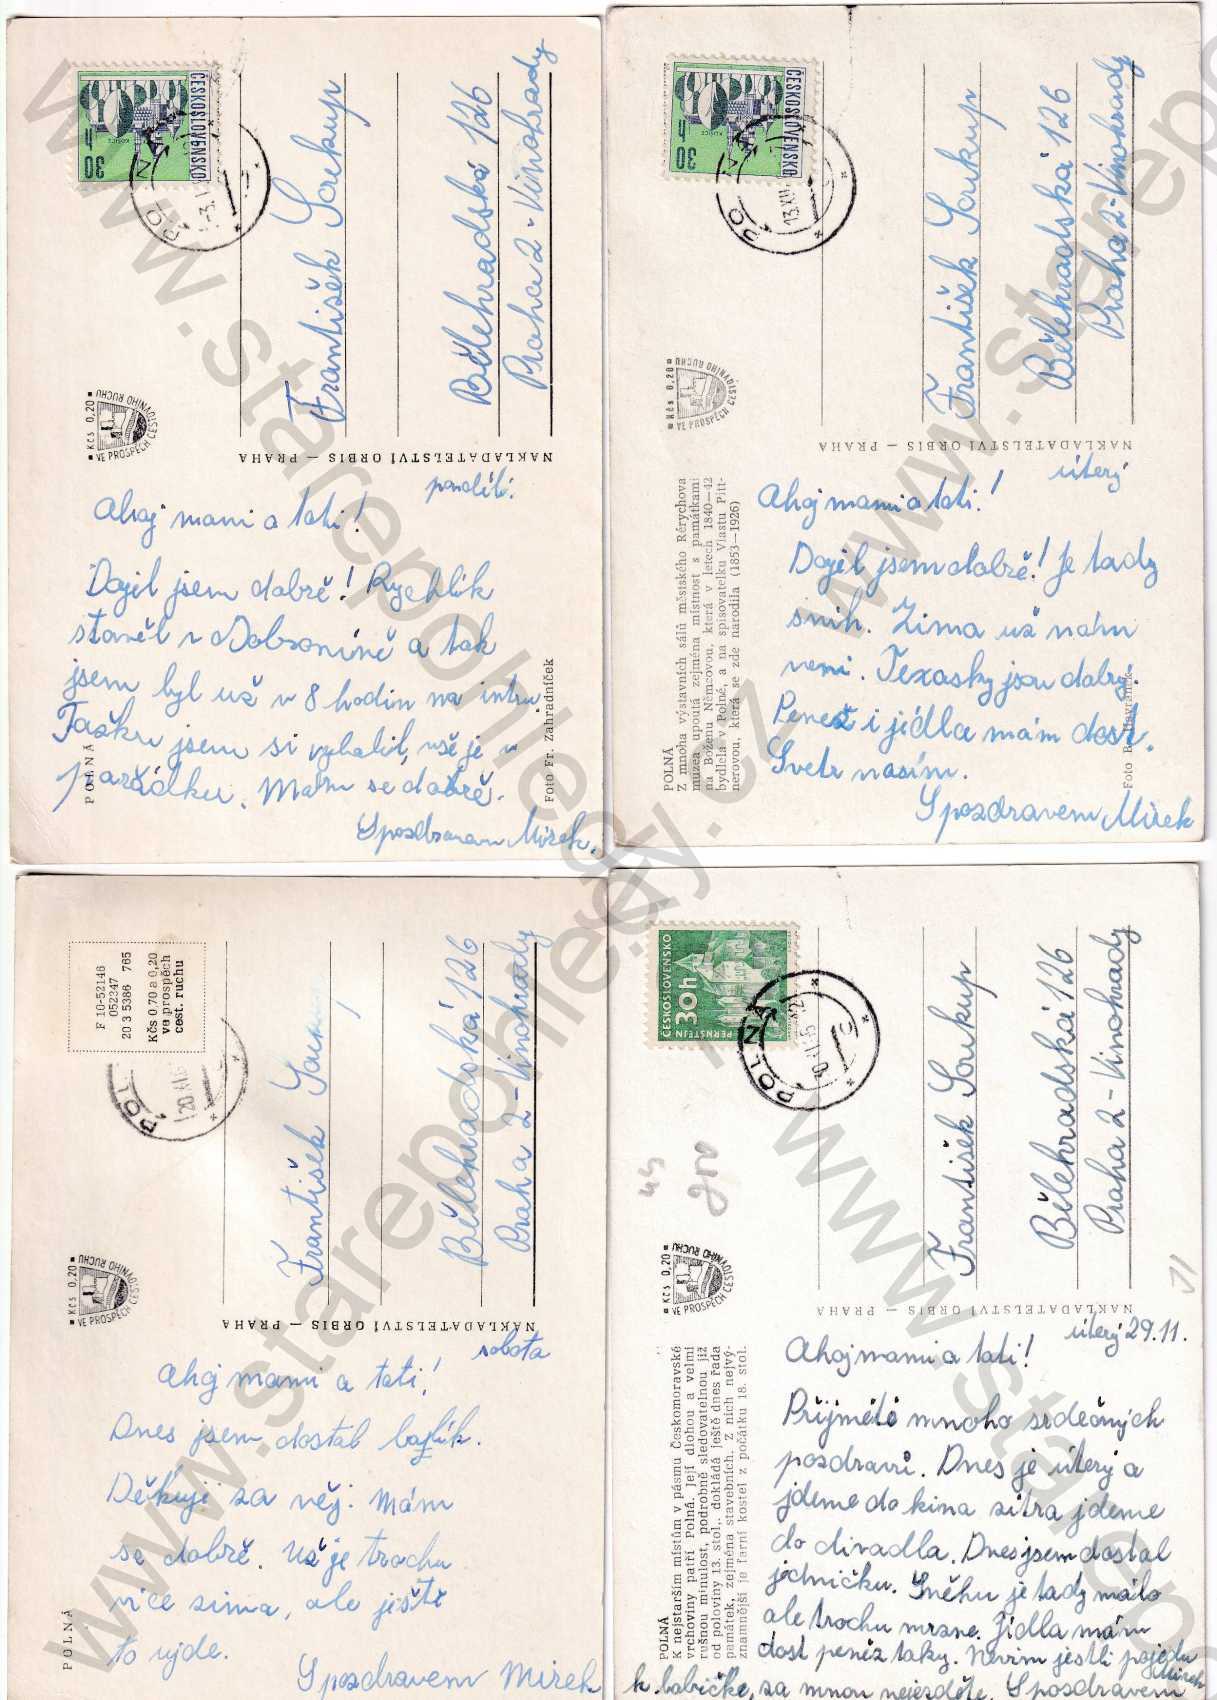 ČESKOSLOVENSKO
30 h
KOŠICE
POLNÁ
František Soukup
Bělehradská 126
Praha 2 - Vinohrady
Kčs 0,20
VE PROSPĚCH CESTOVNÍHO RUCHU
NAKLADATELSTVÍ ORBIS — PRAHA
Ahoj mami a tati!
Dojel jsem dobře! Rychlík
stavěl v Dobroníně a tak
jsem byl už v 8 hodin na intru.
Tašku jsem si vybalil, vše je v
pořádku. Mám se dobře.
S pozdravem Mirek.
POLNÁ
Foto Fr. Zahradníček
ČESKOSLOVENSKO
30 h
POLNÁ
13.XII
František Soukup
Bělehradská 126
Praha 2 - Vinohrady
Kčs 0,20
VE PROSPĚCH CESTOVNÍHO RUCHU
NAKLADATELSTVÍ ORBIS — PRAHA
úterý
Ahoj mami a tati!
Dojel jsem dobře! Je tady
sníh. Zima už nám
není. Texasky jsou dobrý.
Peněz i jídla mám dost.
Svetr nosím.
S pozdravem Mirek
POLNÁ
Z mnoha výstavních sálů městského Rérychova
muzea upoutá zejména místnost s památkami
na Boženu Němcovou, která v letech 1840—42
bydlela v Polné, a na spisovatelku Vlastu Pitt-
nerovou, která se zde narodila (1853—1926)
Foto
F 10-52146
052347
20 3 5386 765
Kčs 0.70 a 0,20
ve prospěch
cest. ruchu
20.XI
František
Bělehradská 126
Praha 2 - Vinohrady
Kčs 0,20
VE PROSPĚCH CESTOVNÍHO RUCHU
NAKLADATELSTVÍ ORBIS — PRAHA
sobota
Ahoj mami a tati!
Dnes jsem dostal balík.
Děkuji za něj. Mám
se dobře. Už je trochu
více zima, ale ještě
to ujde.
S pozdravem Mirek
POLNÁ
ČESKOSLOVENSKO
30h
PERNŠTEJN
POLNÁ
František Soukup
Bělehradská 126
Praha 2 - Vinohrady
Kčs 0,20
VE PROSPĚCH CESTOVNÍHO RUCHU
NAKLADATELSTVÍ ORBIS — PRAHA
úterý 29.11.
Ahoj mami a tati!
Přijměte mnoho srdečných
pozdravů. Dnes je úterý a
jdeme do kina zítra jdeme
do divadla. Dnes jsem dostal
jedničku. Sněhu je tady málo
ale trochu mrzne. Jídla mám
dost peněz taky. Nevím jestli pojedu
k babičce, za mnou nejezděte. S pozdravem
Mirek
POLNÁ
K nejstarším místům v pásmu Českomoravské
vrchoviny patří Polná. Její dlouhou a velmi
rušnou minulost, podrobně sledovatelnou již
od poloviny 13. stol., dokládá ještě dnes řada
památek, zejména stavebních. Z nich nejvý-
znamnější je farní kostel z počátku 18. stol.
www.starepohledy.cz